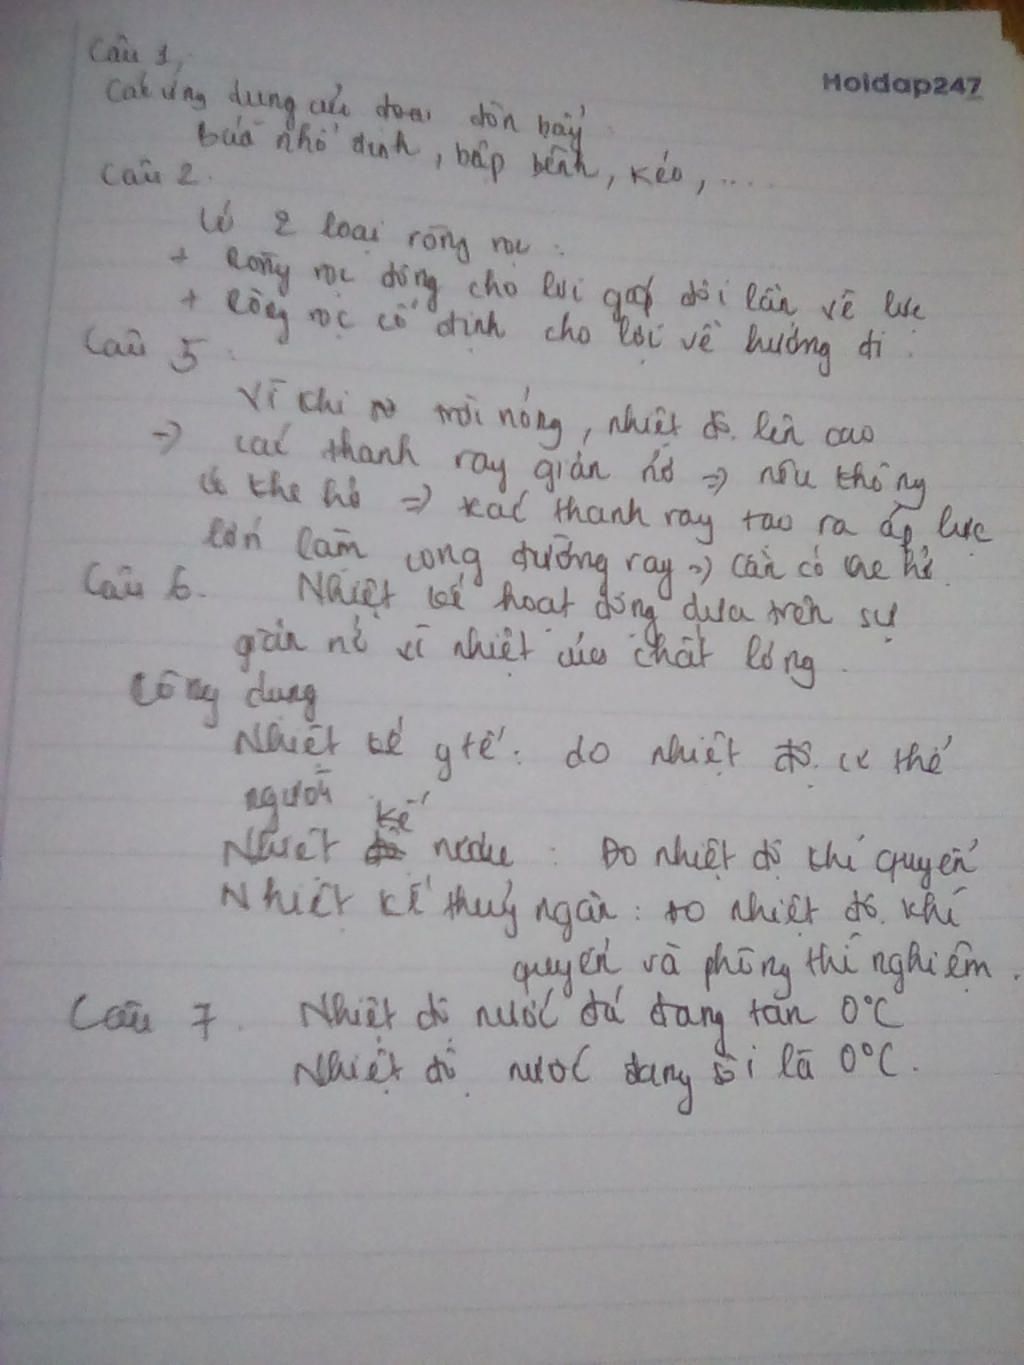 Câu 1,
Hoidap247
Các ứng dụng của đòn bẩy
Búa nhổ đinh, bập bênh, kéo, ....
Câu 2.
Có 2 loại ròng rọc :
+ Ròng rọc động cho lợi gấp đôi lần về lực
+ Ròng rọc cố định cho lợi về hướng đi .
Câu 5 :
Vì khi trời nóng, nhiệt độ lên cao
=> các thanh ray giãn nở => nếu không
có khe hở => các thanh ray tạo ra áp lực
lớn làm cong đường ray => cần có khe hở.
Câu 6. Nhiệt kế hoạt động dựa trên sự
giãn nở vì nhiệt của chất lỏng .
Công dụng
Nhiệt kế y tế : đo nhiệt độ cơ thể
người
Nhiệt kế rượu : Đo nhiệt độ khí quyển
Nhiệt kế thuỷ ngân : đo nhiệt độ khí
quyển và phòng thí nghiệm .
Câu 7. Nhiệt độ nước đá đang tan 0°C
Nhiệt độ nước đang sôi là 0°C.